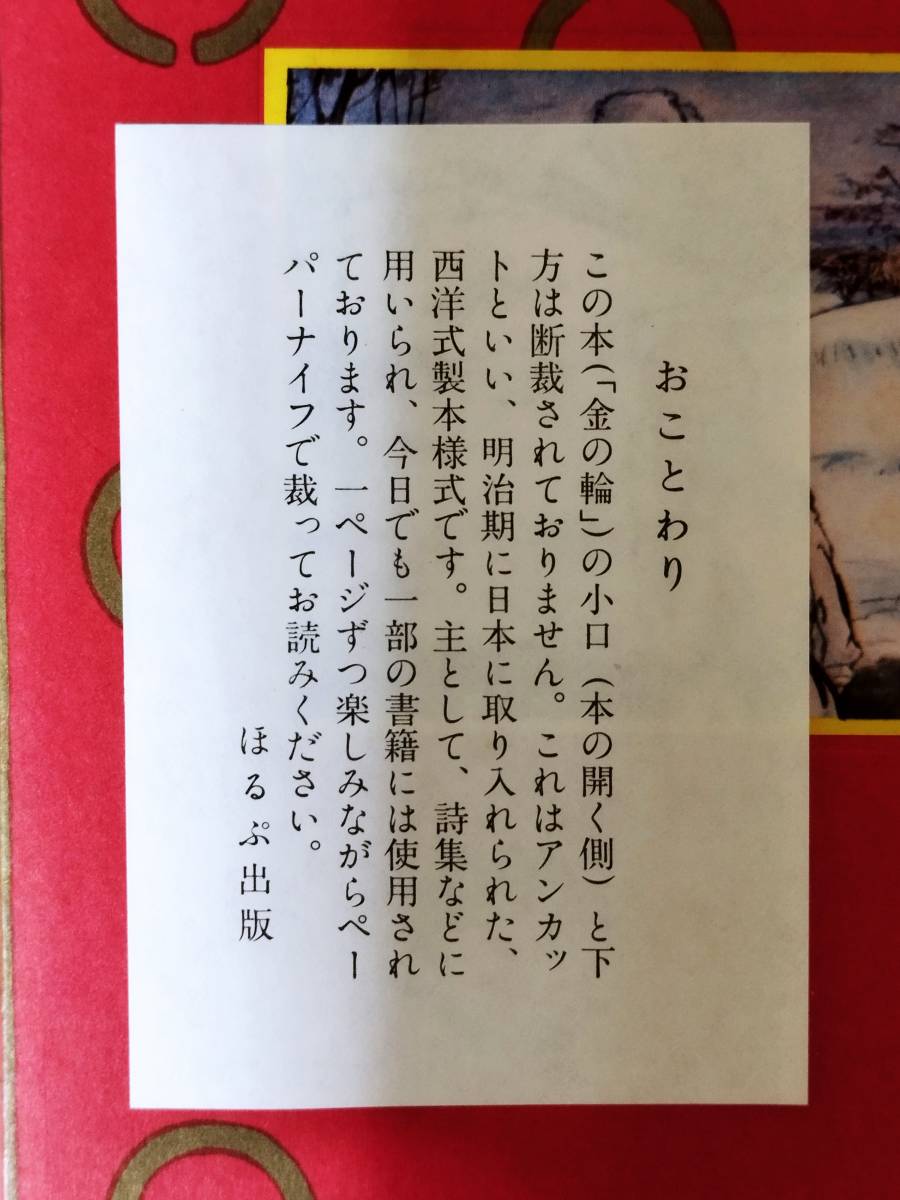 おことわり
この本(「金の輪」)の小口(本の開く側)と下
方は断裁されておりません。これはアンカッ
トといい、明治期に日本に取り入れられた、
西洋式製本様式です。主として、詩集などに
用いられ、今日でも一部の書籍には使用され
ております。一ページずつ楽しみながらペー
パーナイフで裁ってお読みください。
ほるぷ出版